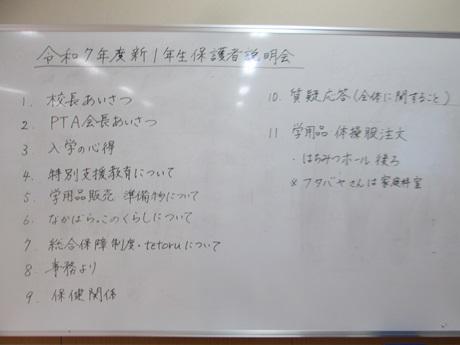 令和7年度新1年生保護者説明会
1. 校長あいさつ
2. PTA会長あいさつ
3. 入学の心得
4. 特別支援教育について
5. 学用品販売 準備物について
6. なかばら。このくらしについて
7 総合保障制度・tetoruについて
8 事務より
9. 保健関係
10. 質疑応答(全体に関すること)
11 学用品・体操服注文
・はちみつホール 後ろ
※フタバヤさんは家庭科室